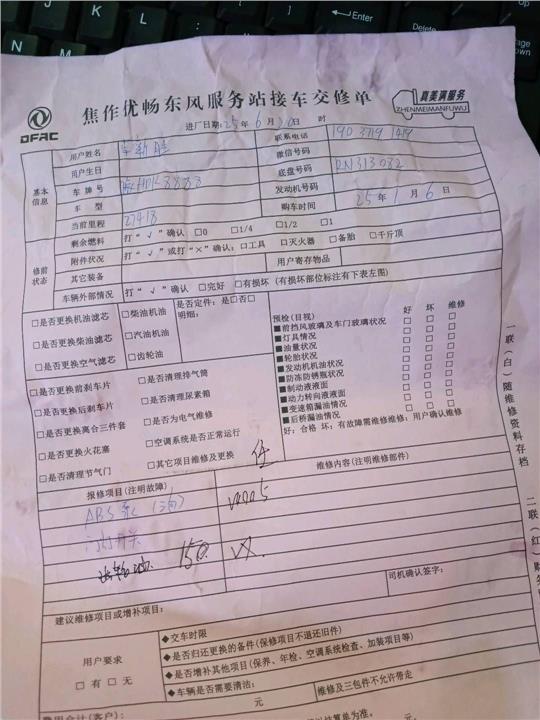 DFAC
焦作优畅东风服务站接车交修单
真美满服务
ZHENMEIMANFUWU
进厂日期：25年6月20日 时
基本信息
用户姓名
联系电话 190 3719 1419
用户生日
微信号码
车牌号
底盘号码 RN313032
车 型
发动机号码
当前里程 27418
购车时间 25年1月6日
修前状态
剩余燃料 打“√”确认 □0 □1/4 □1/2 □1
附件状况 打“√”或打“×”确认：□工具 □灭火器 □备胎 □千斤顶
其它装备 用户寄存物品
车辆外部情况 打“√”确认 □完好 □有损坏（有损坏部位标注有下表左图）
□是否更换机油滤芯
□是否更换柴油滤芯
□是否更换空气滤芯
□柴油机油
□汽油机油
□齿轮油
是否定件：是□否□
明细：
□是否更换前刹车片
□是否更换后刹车片
□是否更换离合三件套
□是否更换火花塞
□是否清理节气门
□是否清理排气筒
□是否清理尿素箱
□是否为电气维修
□空调系统是否正常运行
□其它项目维修及更换
预检（目视） 好 坏 维修
■前挡风玻璃及车门玻璃状况 □ □ □
■灯具情况 □ □ □
■油量状况 □ □ □
■轮胎状况 □ □ □
■发动机机油状况 □ □ □
■防冻防锈瓶状况 □ □ □
■制动液液面 □ □ □
■动力转向液液面 □ □ □
■变速箱漏油情况 □ □ □
■后桥漏油情况 □ □ □
好：合格 坏：有故障需维修维修：用户确认维修
报修项目（注明故障）
维修内容（注明维修部件）
ABS泵
开关
150.
司机确认签字：
建议维修项目或增补项目：
用户要求
□有 □无
◆交车时限
◆是否归还更换的备件（保修项目不退还旧件）
◆是否增补其他项目（保养、年检、空调系统检查、加装项目等）
◆车辆是否需要清洁：
维修及三包件不允许带走
费用合计（客户）： 元
元
结算单为准。
一联（白）随维修资料存档
二联（红）